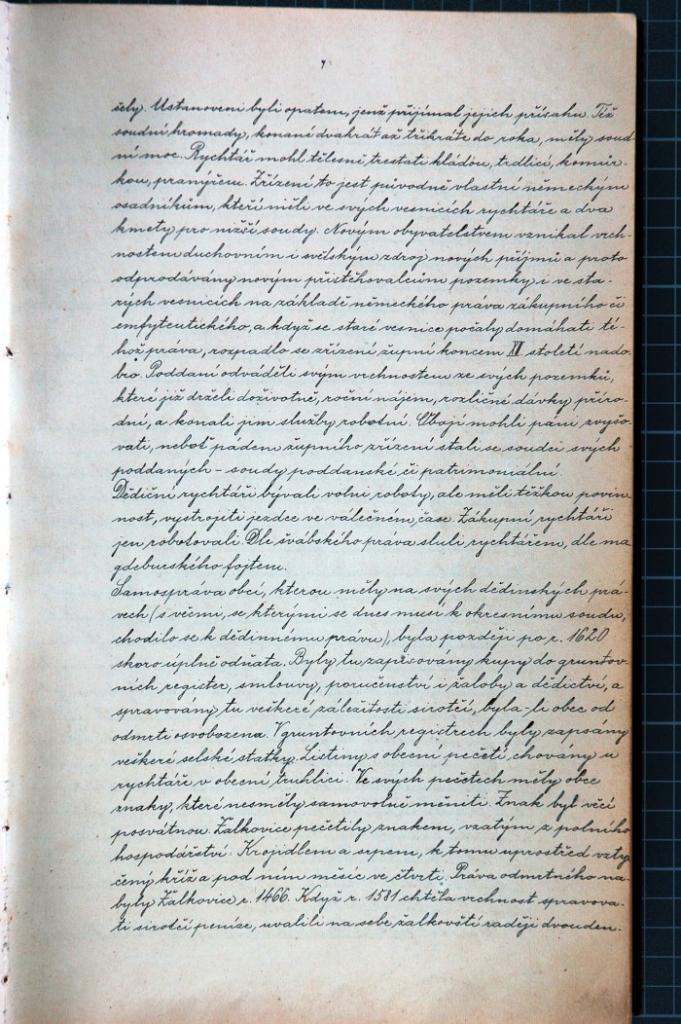 7
šely. Ustanoveni byli opatem, jenž přijímal jejich přísahu. Též
soudní hromady, konané dvakrát až třikráte do roka, měly soud
ní moc. Rychtář mohl tělesně trestati kládou, trdlicí, komůr-
kou, pranýřem. Zřízení to jest původně vlastní německým
osadníkům, kteří měli ve svých vesnicích rychtáře a dva
kmety pro nižší soudy. Novým obyvatelstvem vznikal vrch-
nostem duchovním i světským zdroj nových příjmů a proto
odprodávány novým přistěhovalcům pozemky i ve sta-
rých vesnicích na základě německého práva zákupního či
emfyteutického, a když se staré vesnice počaly domáhati té-
hož práva, rozpadlo se zřízení župní koncem století nado-
bro. Poddaní odváděli svým vrchnostem ze svých pozemků,
které již drželi doživotně, roční nájem, rozličné dávky příro-
dní, a konali jim služby robotní. Obojí mohli páni zvyšo-
vati, neboť pádem župního zřízení stali se soudci svých
poddaných - soudy poddanské či patrimoniální.
Dědiční rychtáři bývali volni roboty, ale měli těžkou povin
nost, vystrojiti jezdce ve válečném čase. Zákupní rychtáři
jen robotovali. Dle švábského práva sluli rychtářem, dle ma
gdeburského fojtem.
Samospráva obcí, kterou měly na svých dědinských prá-
vech (s věcmi, se kterými se dnes musí k okresnímu soudu,
chodilo se k dědinnému právu), byla později po r. 1620
skoro úplně odňata. Byly tu zapisovány kupy do gruntov-
ních register, smlouvy, poručenství i žaloby a dědictví, a
spravovány tu veškeré záležitosti sirotčí, byla-li obec od
odmrti osvobozena. V gruntovních registrech byly zapsány
veškeré selské statky. Listiny s obecní pečetí chovány u
rychtáře v obecní truhlici. Ve svých pečetech měly obce
znaky, které nesměly samovolně měniti. Znak byl věcí
posvátnou. Žalkovice pečetily znakem, vzatým z polního
hospodářství. Krojidlem a srpem, k tomu uprostřed vzty
čený kříž a pod ním měsíc ve čtvrti. Práva odmrtného na-
byly Žalkovice r. 1466. Když r. 1581 chtěla vrchnost spravova-
ti sirotčí peníze, uvalili na sebe žalkovští raději dvouden.